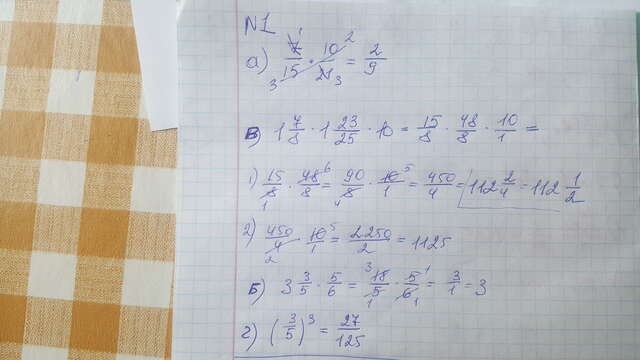 N1
а) 7/15 · 10/21 = 2/9
в) 1 7/8 · 1 23/25 · 10 = 15/8 · 48/8 · 10/1 =
1) 15/8 · 48/8 = 90/8 · 10/1 = 450/4 = 112 2/4 = 112 1/2
2) 450/4 · 10/1 = 2250/2 = 1125
Б) 3 3/5 · 5/6 = 18/5 · 5/6 = 3/1 = 3
г) (3/5)³ = 27/125